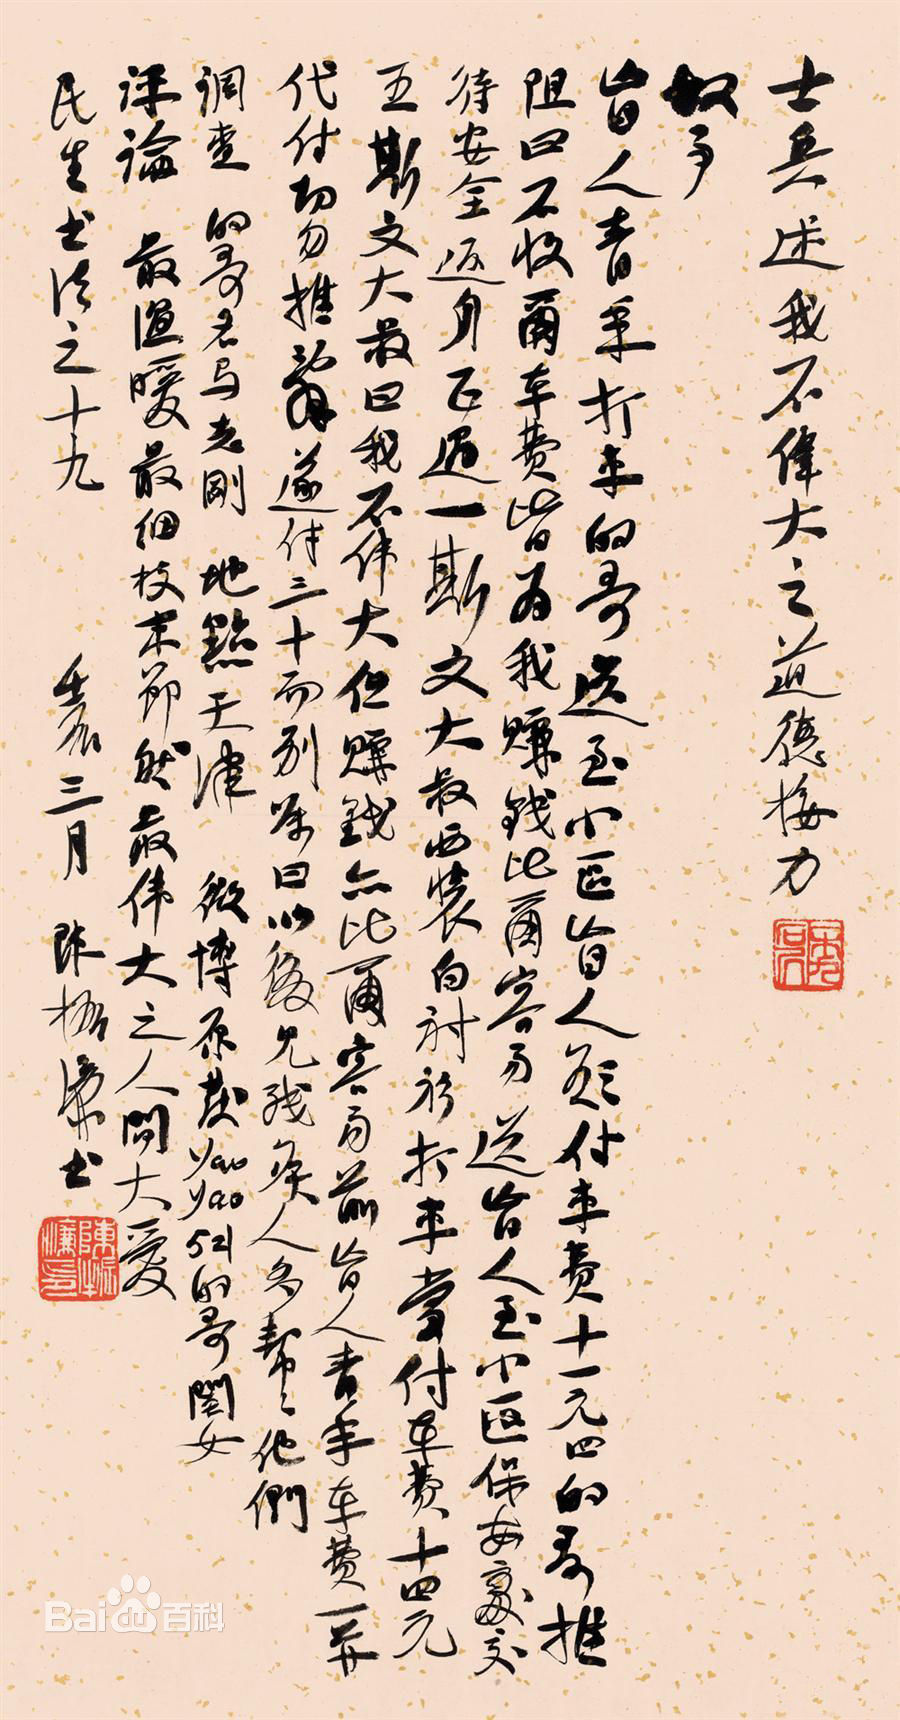 士兵述我不偉大之道德接力
叙事
盲人青年打车的哥送至小区盲人欲付车费十一元四的哥推
阻曰不收爾车费皆为我赚钱比爾容易送盲人至小区保安處交
待安全返身正遇一斯文大叔西装白衬衫打车當付车费十四元
五斯文大叔曰我不伟大但赚钱亦比爾容易前盲人青年车费一并
代付勿推辞遂付三十而别属曰以後见残疾人多帮々他們
调查 的哥名马志刚 地點天津 微博原载yaoyao521的哥閨女
评論 最温暖最细枝末節然最伟大之人間大爱
民生书法之十九 壬辰三月 陈梗濂书
Bai百科